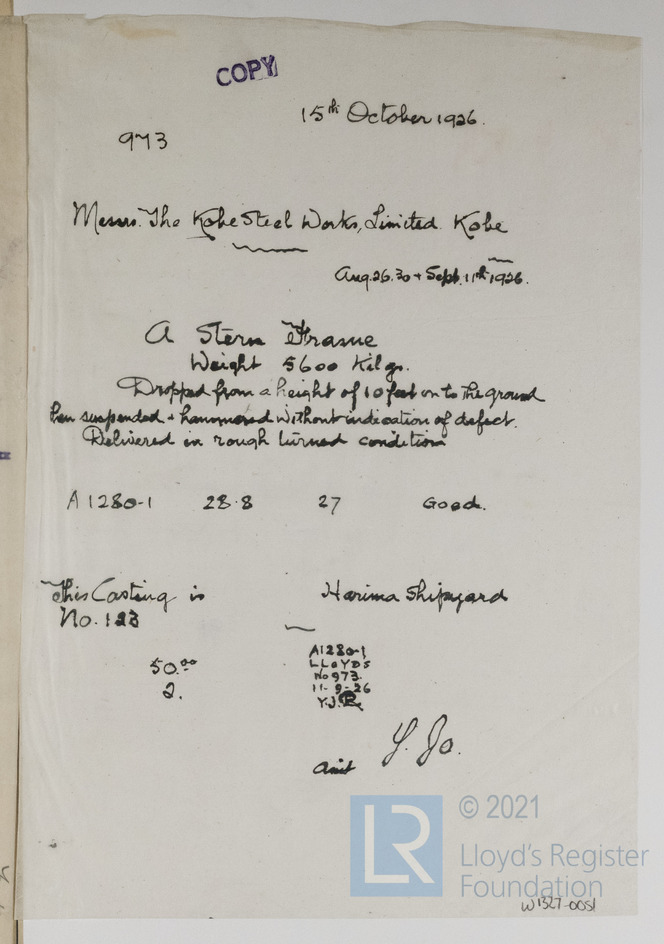 COPY
15th October 1926.
973
Messrs. The Kobe Steel Works, Limited. Kobe
Aug. 26. 30 + Sept. 11th 1926.
A Stern Frame
Weight 5600 Kilgs.
Dropped from a height of 10 feet on to the ground
hen suspended + hammered without indication of defect.
Delivered in rough turned condition
A1280-1 28.8 27 Good.
This Casting is Harima Shipyard
No. 123
50.00
2.
A1280-1
LLOYDS
No 973.
11-9-26
Y.J.
Y. Jo.
© 2021
LR
Lloyd's Register
Foundation
W1327-0051